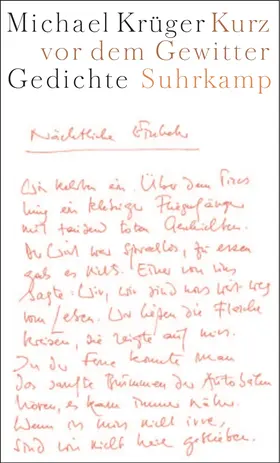 Michael Krüger Kurz
vor dem Gewitter
Gedichte Suhrkamp
Nächtliche Einkehr
Wir kehrten ein. Über dem Tisch
hing ein klebriger Fliegenfänger
mit tausend toten Geschichten.
Der Wirt war sprachlos, zu essen
gab es nichts. Einer von uns
sagte: Wir, wir sind was wert weg
vom Leben. Wir ließen die Flasche
kreisen, die zeigte auf mich.
In der Ferne konnte man
das sanfte Brummen der Autobahn
hören, es kam immer näher.
Wenn ich mich nicht irre,
sind wir nicht hier geblieben.